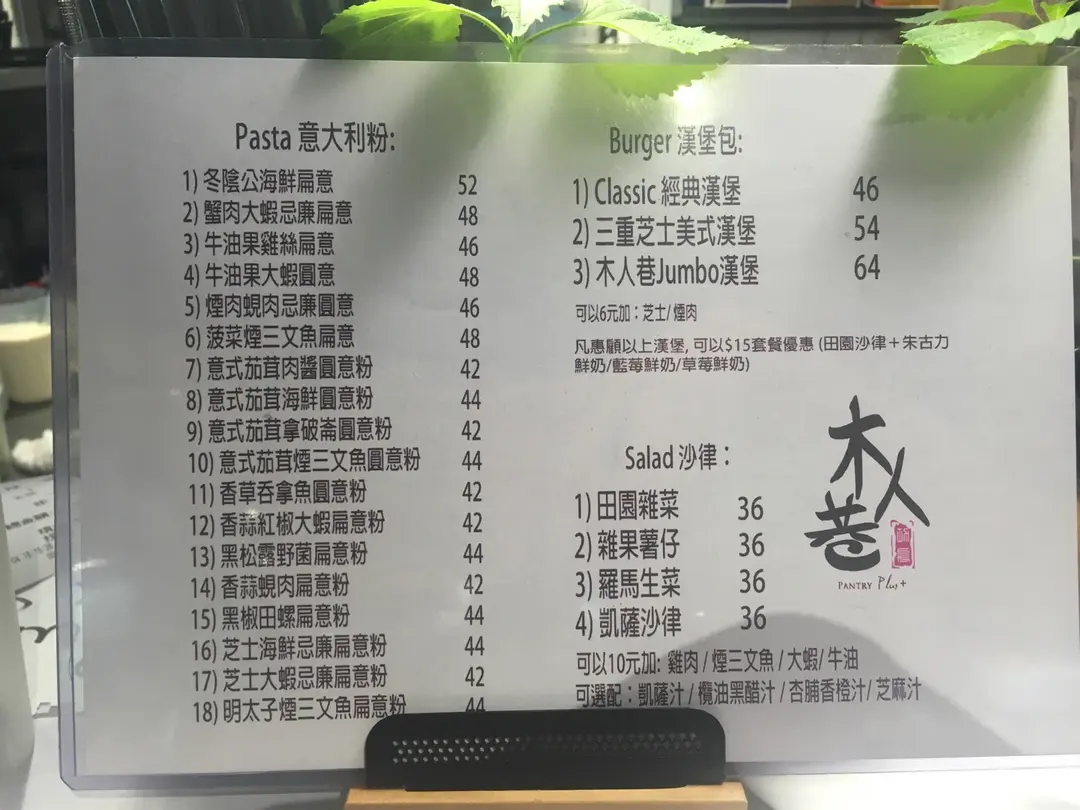 Pasta 意大利粉:
1) 冬陰公海鮮扁意 52
2) 蟹肉大蝦忌廉扁意 48
3) 牛油果雞絲扁意 46
4) 牛油果大蝦圓意 48
5) 煙肉蜆肉忌廉圓意 46
6) 菠菜煙三文魚扁意 48
7) 意式茄茸肉醬圓意粉 42
8) 意式茄茸海鮮圓意粉 44
9) 意式茄茸拿破崙圓意粉 42
10) 意式茄茸煙三文魚圓意粉 44
11) 香草吞拿魚圓意粉 42
12) 香蒜紅椒大蝦扁意粉 42
13) 黑松露野菌扁意粉 44
14) 香蒜蜆肉扁意粉 42
15) 黑椒田螺扁意粉 44
16) 芝士海鮮忌廉扁意粉 44
17) 芝士大蝦忌廉扁意粉 42
18) 明太子煙三文魚扁意粉 44
Burger 漢堡包:
1) Classic 經典漢堡 46
2) 三重芝士美式漢堡 54
3) 木人巷Jumbo漢堡 64
可以6元加：芝士/ 煙肉
凡惠顧以上漢堡, 可以$15套餐優惠 (田園沙律＋朱古力
鮮奶/藍莓鮮奶/草莓鮮奶)
Salad 沙律：
1) 田園雜菜 36
2) 雜果薯仔 36
3) 羅馬生菜 36
4) 凱薩沙律 36
可以10元加: 雞肉 / 煙三文魚 / 大蝦/ 牛油
可選配：凱薩汁 / 欖油黑醋汁 / 杏脯香橙汁/ 芝麻汁
木人巷
PANTRY Plus+